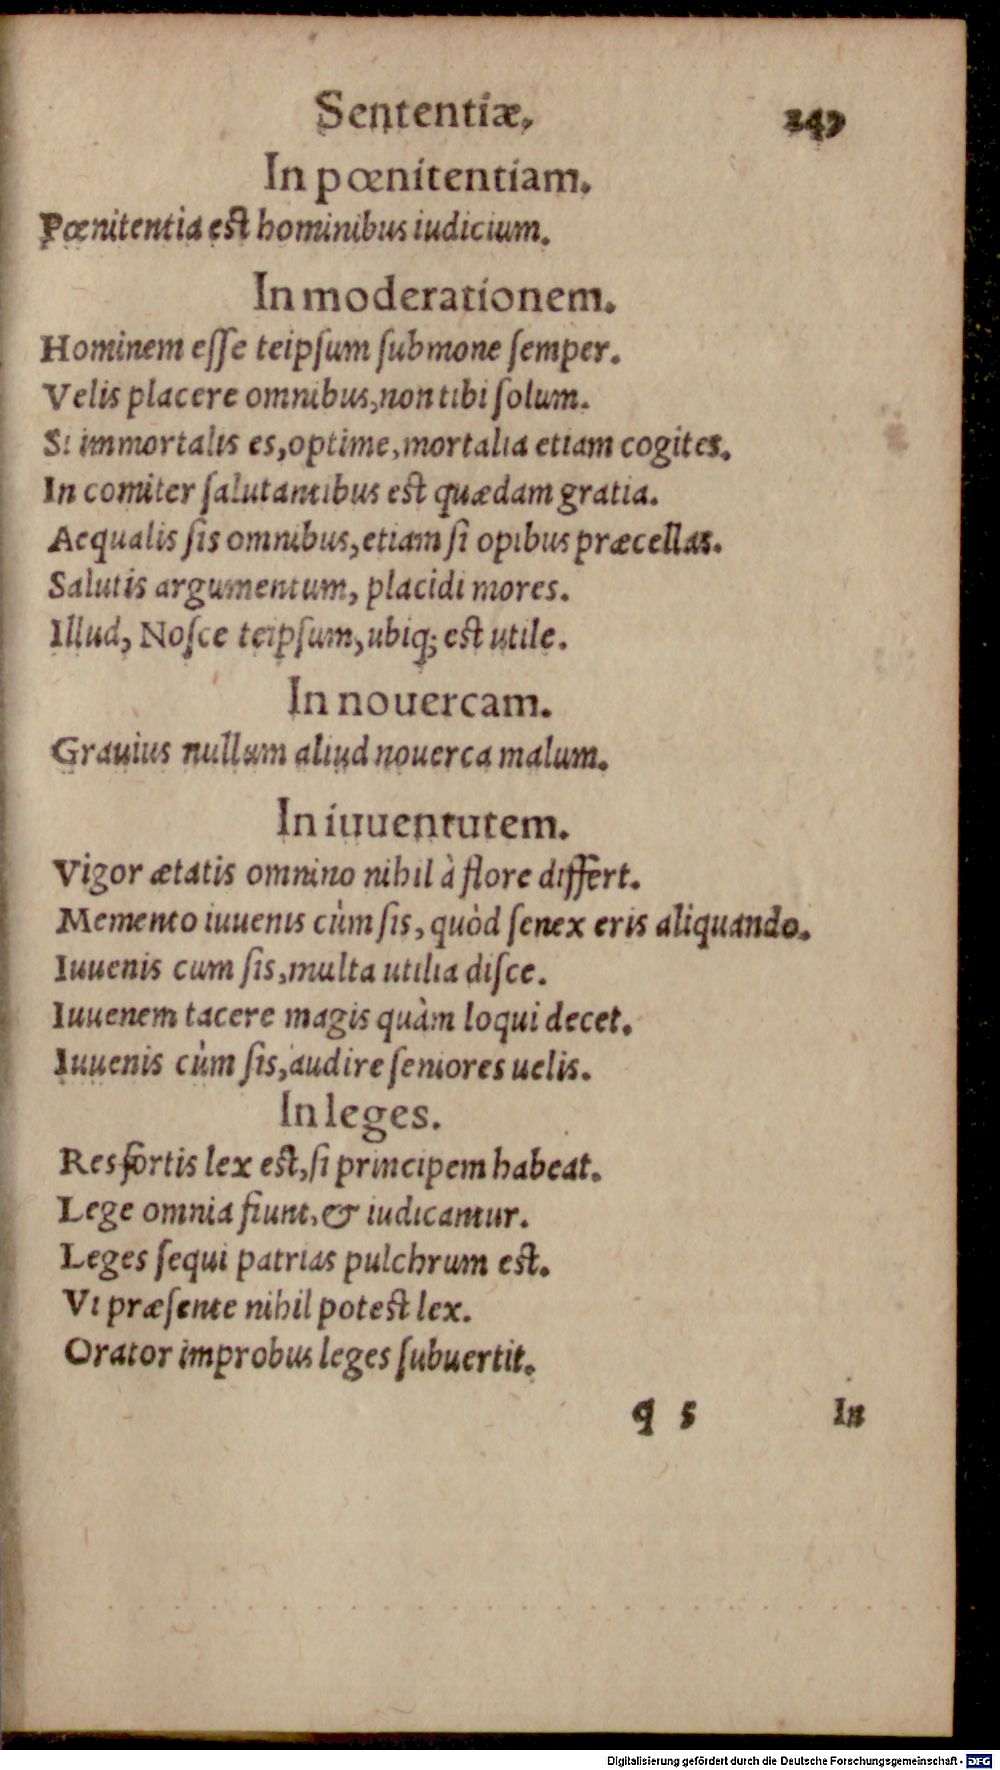 Sententiæ. 249
In pœnitentiam.
Pœnitentia est hominibus iudicium.
In moderationem.
Hominem eſſe teipſum ſubmone ſemper.
Velis placere omnibus, non tibi ſolum.
Si immortalis es, optime, mortalia etiam cogites.
In comiter ſalutantibus est quædam gratia.
Aequalis ſis omnibus, etiam ſi opibus præcellas.
Salutis argumentum, placidi mores.
Illud, Noſce teipſum, ubiq; est utile.
In nouercam.
Grauius nullum aliud nouerca malum.
In iuuentutem.
Vigor ætatis omnino nihil à flore differt.
Memento iuuenis cùm ſis, quòd ſenex eris aliquando.
Iuuenis cum ſis, multa utilia diſce.
Iuuenem tacere magis quàm loqui decet.
Iuuenis cùm ſis, audire ſeniores uelis.
In leges.
Res fortis lex est, ſi principem habeat.
Lege omnia fiunt, & iudicantur.
Leges ſequi patrias pulchrum est.
Vi præſente nihil potest lex.
Orator improbus leges ſubuertit.
q 5 In
Digitalisierung gefördert durch die Deutsche Forschungsgemeinschaft - DFG